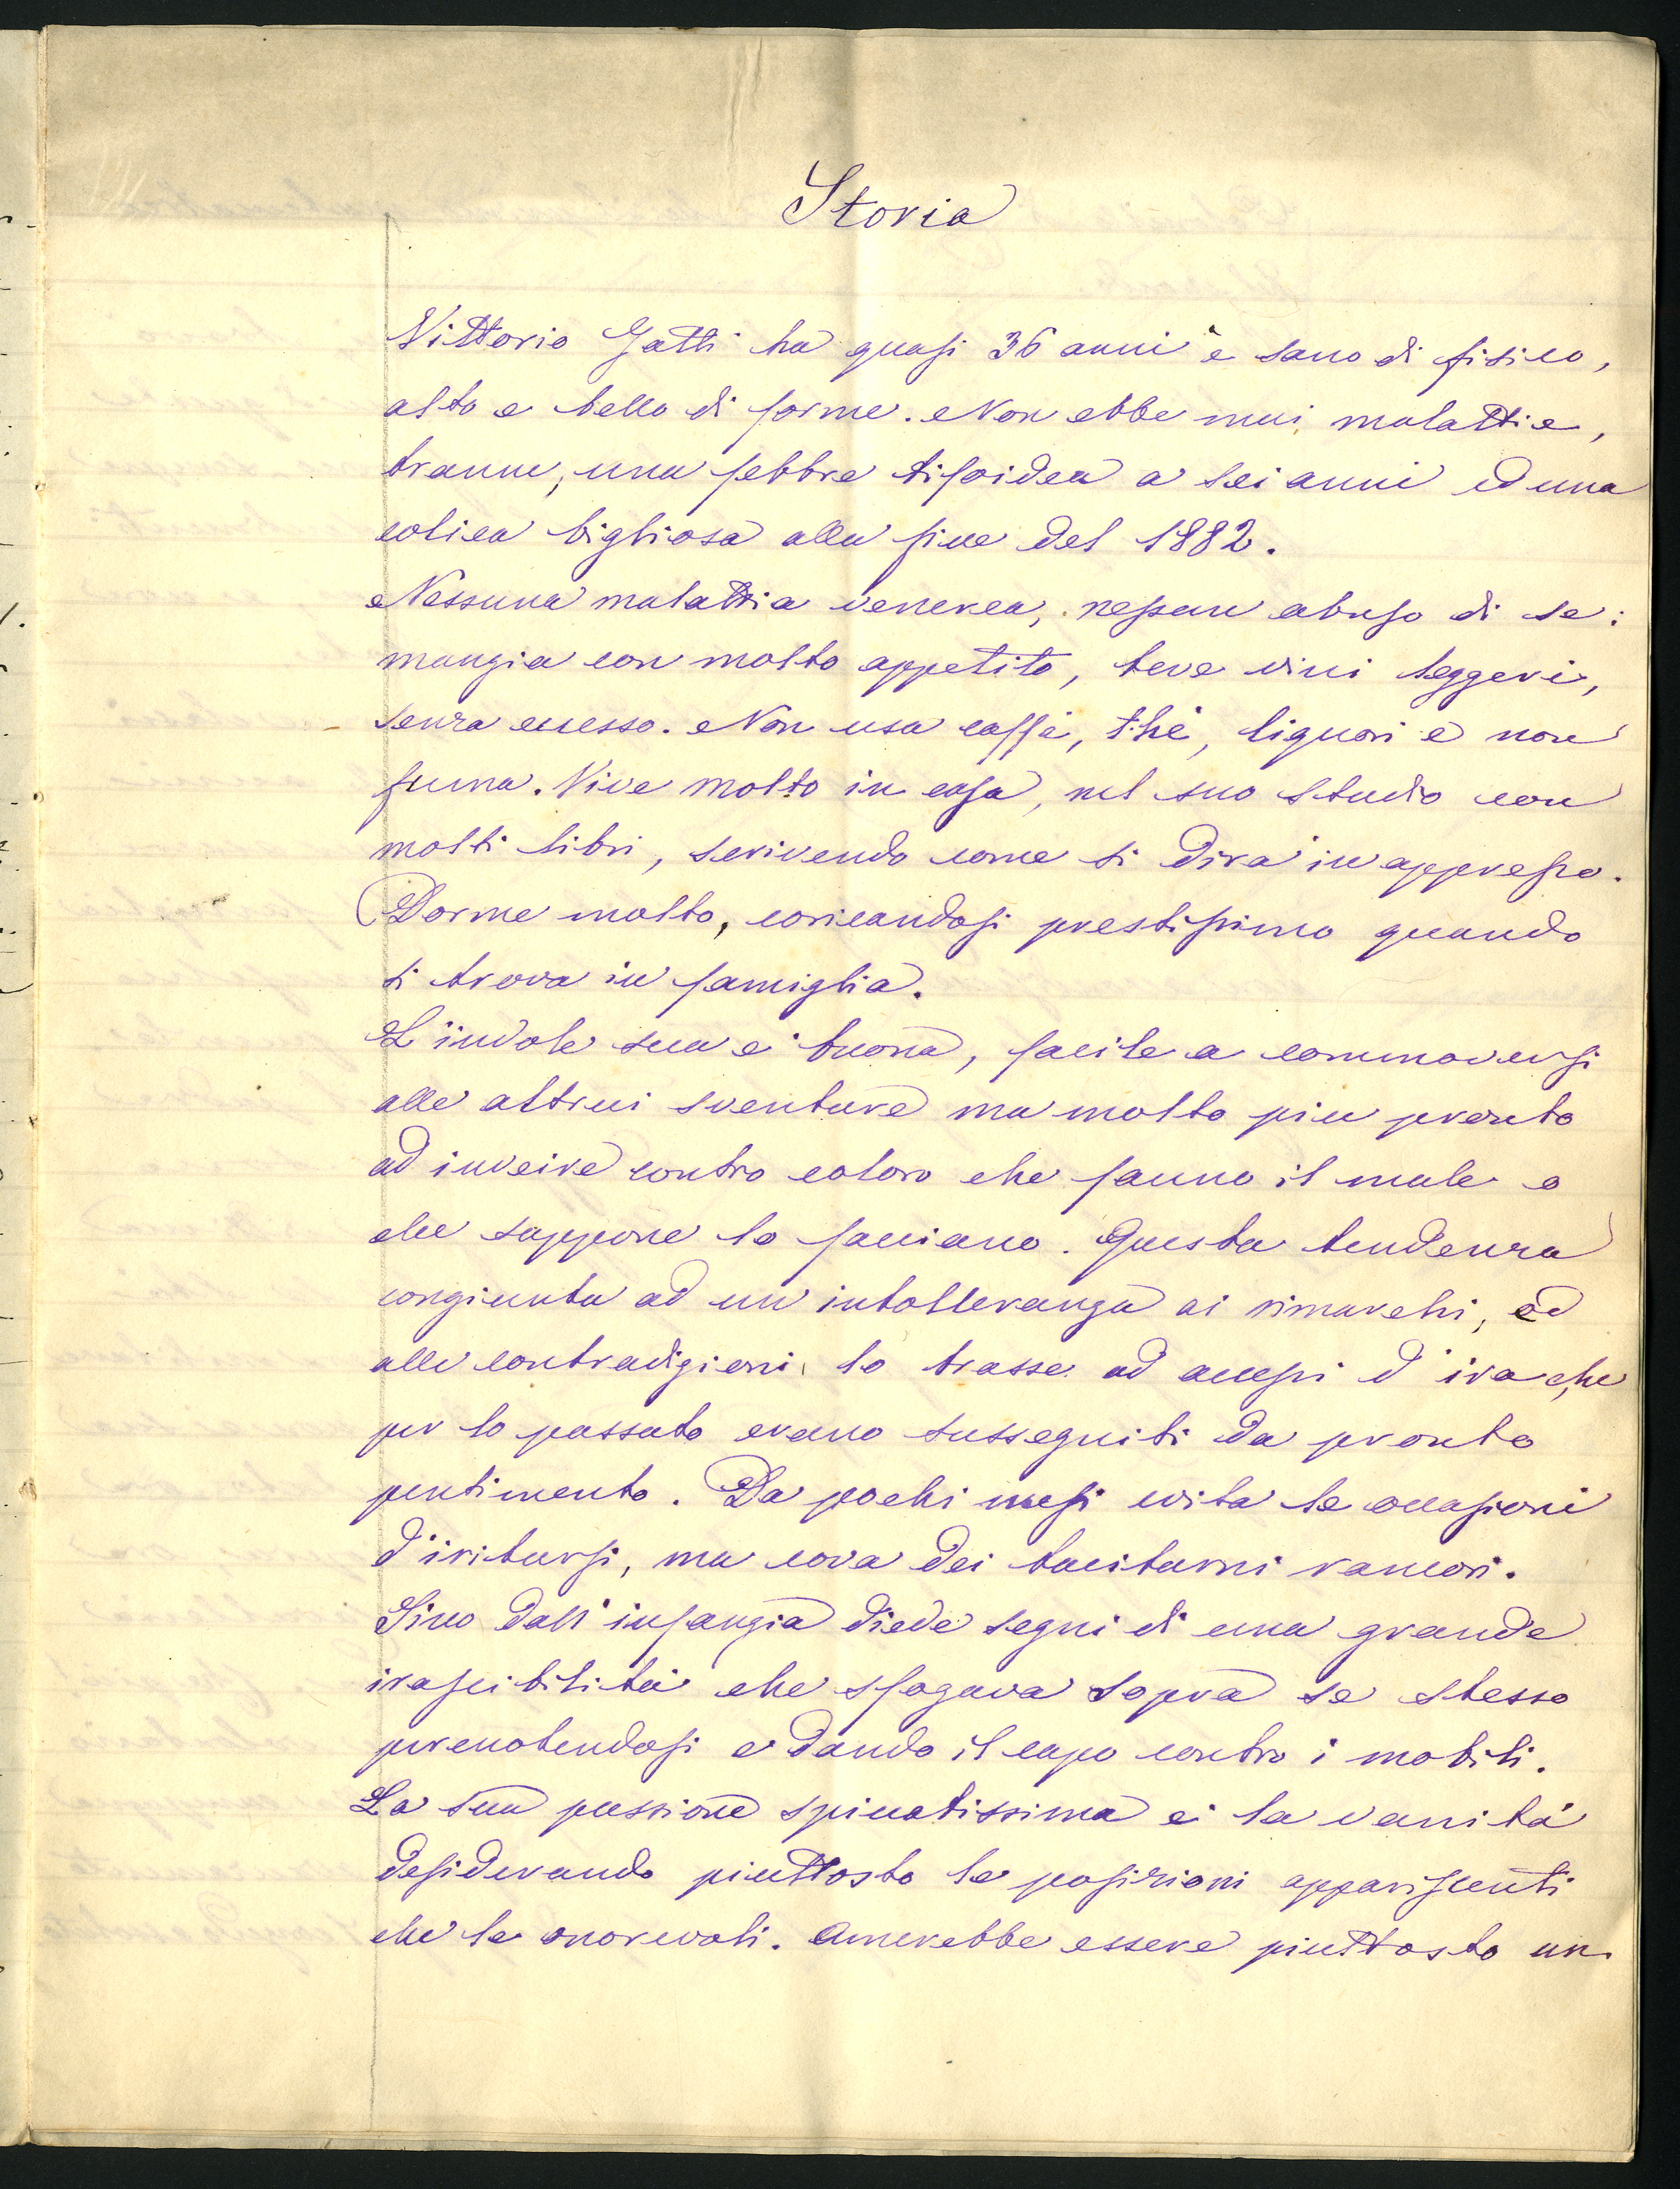 Storia
Vittorio Gatti ha quasi 36 anni è sano di fisico,
alto e bello di forme. Non ebbe mai malattie,
tranne, una febbre tifoidea a sei anni ed una
colica bigliosa alla fine del 1882.
Nessuna malattia venerea, nessun abuso di se:
mangia con molto appetito, beve vini leggeri,
senza eccesso. Non usa caffè, thè, liquori e non
fuma. Vive molto in casa, nel suo studio con
molti libri, scrivendo come si dirà in appresso.
Dorme molto, coricandosi prestissimo quando
si trova in famiglia.
L'indole sua è buona, facile a commoversi
alle altrui sventure ma molto più pronto
ad inveire contro coloro che fanno il male o
che suppone lo facciano. Questa tendenza
congiunta ad un intolleranza ai rimarchi, ed
alle contradizioni lo trasse ad accessi d'ira che,
per lo passato erano susseguiti da pronto
pentimento. Da pochi mesi evita le occasioni
d'iritarsi, ma cova dei taciturni rancori.
Sino dall'infanzia diede segni di una grande
irascibilità che sfogava sopra se stesso
percuotendosi e dando il capo contro i mobili.
La sua passione spiccatissima è la vanità
desiderando piuttosto le posizioni appariscenti
che le onorevoli. Amerebbe essere piuttosto un